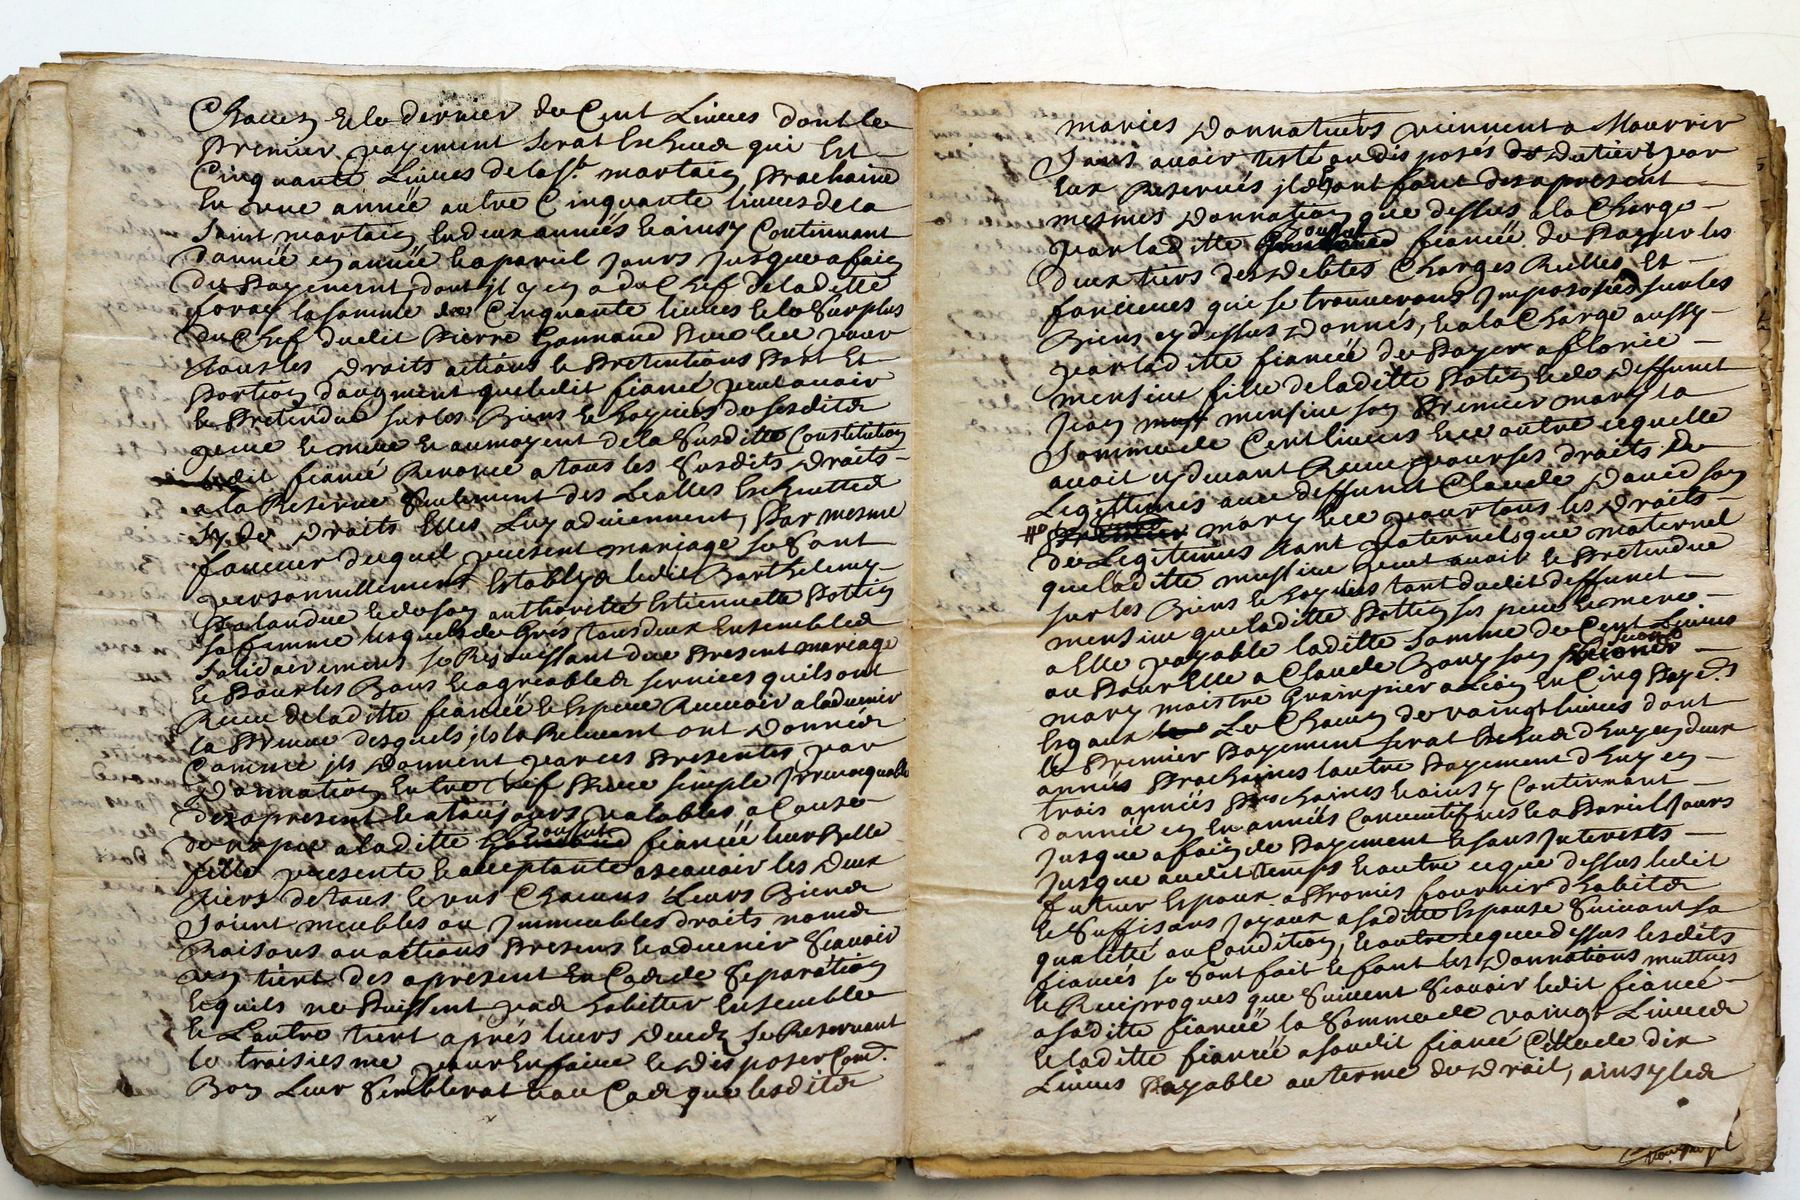 Chacun et le dernier de Cent Livres dont le
Premier payement serat Escheud qui Est
Cinquante Livres de la St. martain Prochaine
En une année autre Cinquante livres de la
Saint martain En deux années & ainsy Continuant
dannée en année & a pareil Jours Jusques a fain
de Payement, dont il y en a du Chef de la ditte
foray la somme de Cinquante livres & le Surplus
du Chef dudit Pierre Gonnand & ce pour
tous les Droits actions & Pretentions Part Et
Portion d'augment que ledit fiancé peut avoir
& Pretendre sur les Biens & hoyries de sesdits
pere & mere & au moyent de la Susditte Constitution
ledit fiancé Renonce a tous les Susdits Droits
a la Reserve Seulement des Escheutted
Sy de Droits Elles Luy adviennent, Par mesme
faveur duquel present mariage se Sont
personnellement Establys ledit Barthelemy
Palandre & de son authorité Estiennette Pottin
sa femme lesquels de Grés tous deux Ensembled
Solidairement se Rejouissant du Present mariage
& Pour les Bons & agreables services quils ont
Receu de la ditte fiancée & Espere Recevoir a ladvenir
la Preuve desquels ils la Relevent ont Donnés
Comme ils Donnent par ces Presentes par
Donnation Entre Vif Pure simple Irrevocquable
des a present & a tousjours valables a Cause
de nopce a la ditte fiancée leur Belle
fille presente & acceptante ascavoir les Deux
tiers de tous & uns Chacuns Leurs Biens
Soient meubles ou Immeubles droits noms
Raisons ou actions Presens & advenir Scavoir
un tiers des a present En Cas de Separation
& quils ne Puissent pas habitter Ensemble
& Lautre tiers aprés leurs Deceds se Reservant
le troisiesme pour En faire & Disposer Com.
Bon Leur Semblerat & au Cas que lesdits
mariés Donnateurs viennent a Mourrir
Sans avoir testé ou disposés du Dutiers par
Eux Reservés ils font des a present
mesmes Donnation que dessus a la Charge
par la ditte fiancée de Payer les
deux tiers des debtes Charges Relles Et
foncieres qui se trouverons Imposés sur les
Biens cy dessus Donnés, & a la Charge aussy
par la ditte fiancée de Payer a florie
mensine fille de la ditte Pottin & de deffunct
Jean mensine son Premier mary la
Somme de Cent livres & ce outre ce quelle
avoit cy devant Receu pour ses droits de
Legittimes avec deffunct Claude David son
mary & ce pour tous les Droits
de Legitimes tant paternels que maternel
que la ditte mensine peut avoir & Pretendre
sur les Biens & hoyries tant dudit deffunct
mensine que la ditte Pottin ses pere & mere
a Elle payable la ditte Somme de Cent Livres
ou Pour Elle a Claude Bouy son second
mary maistre Guimpier a Lion En Cinq Paye.ts
Esgaux Le Chacun de vaingt livres dont
le Premier Payement serat Escheud d'huy en deux
années Prochaines lautre Payement d'huy en
trois années Prochaines & ainsy Continuant
dannée en En années Consecutifves & a Pareil Jours
Jusque a fain de Payement & sans Interests
Jusque audit temps & outre ce que dessus ledit
futur Espoux a Promis fournir d'habits
& Suffisans Joyaux a sa ditte Espouse Suivant sa
qualitté ou Condition, & outre ce que dessus lesdits
fiancés se sont fait & font les Donnations muttues
& Reciproques que Suivent Scavoir ledit fiancé
a sa ditte fiancée la Somme de vaingt Livres
& la ditte fiancée a son dit fiancé Celle de dix
Livres Payable au terme du Droit, ainsy les